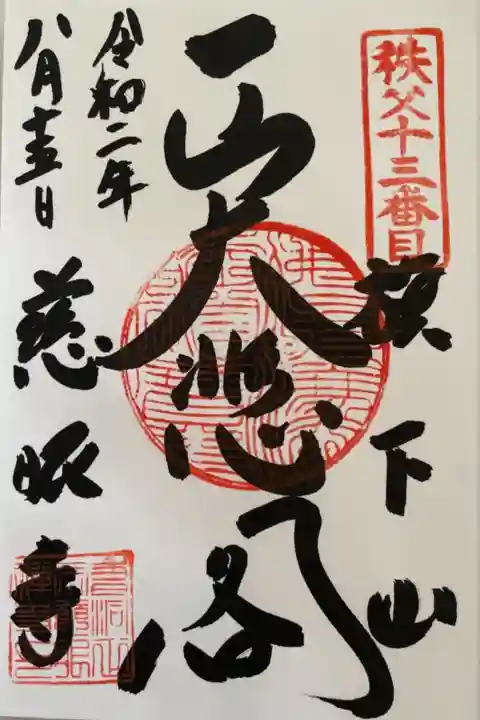 秩父十三番目
旗下山
大悲閣
令和二年
八月十五日
慈眼寺